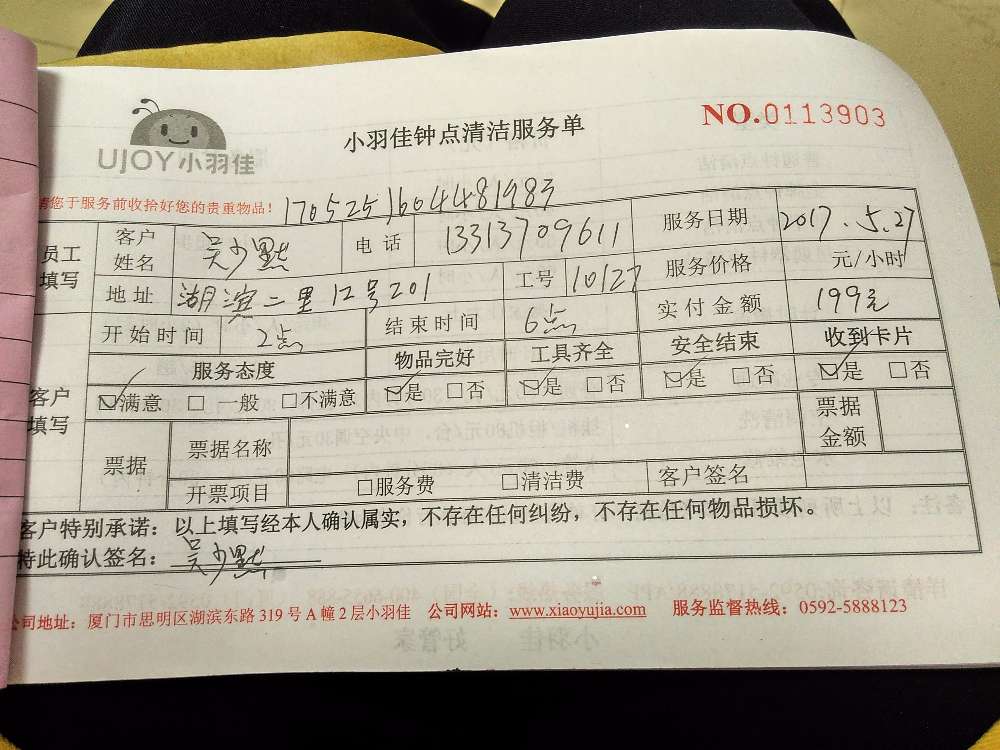 UJOY小羽佳
小羽佳钟点清洁服务单
NO.0113903
请您于服务前收拾好您的贵重物品！ 1705251604481983
员工填写 客户姓名 吴少默 电话 13313709611 服务日期 2017.5.27
地址 湖滨二里12号201 工号 10127 服务价格 元/小时
客户填写 开始时间 2点 结束时间 6点 实付金额 199元
服务态度 物品完好 工具齐全 安全结束 收到卡片
满意 一般 不满意 是 否 是 否 是 否 是 否
票据 票据名称 票据金额
开票项目 服务费 清洁费 客户签名
客户特别承诺：以上填写经本人确认属实，不存在任何纠纷，不存在任何物品损坏。
特此确认签名：吴少默
公司地址：厦门市思明区湖滨东路319号A幢2层小羽佳 公司网站：www.xiaoyujia.com 服务监督热线：0592-5888123